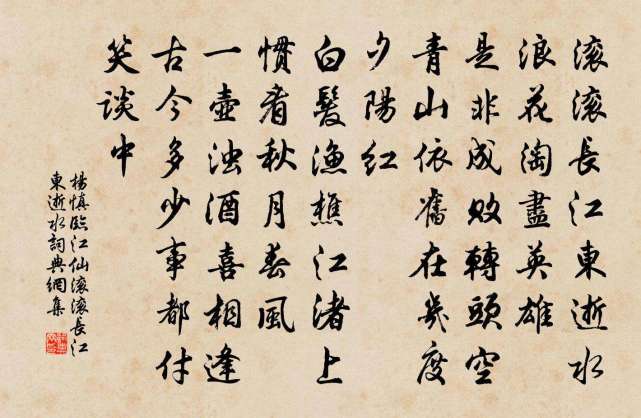 滚滚長江東逝水
浪花淘盡英雄
是非成败轉頭空
青山依舊在幾度
夕陽紅
白髮漁樵江渚上
慣看秋月春風
一壺浊酒喜相逢
古今多少事都付
笑談中
楊慎臨江仙滚滚長江
東逝水詞典網集